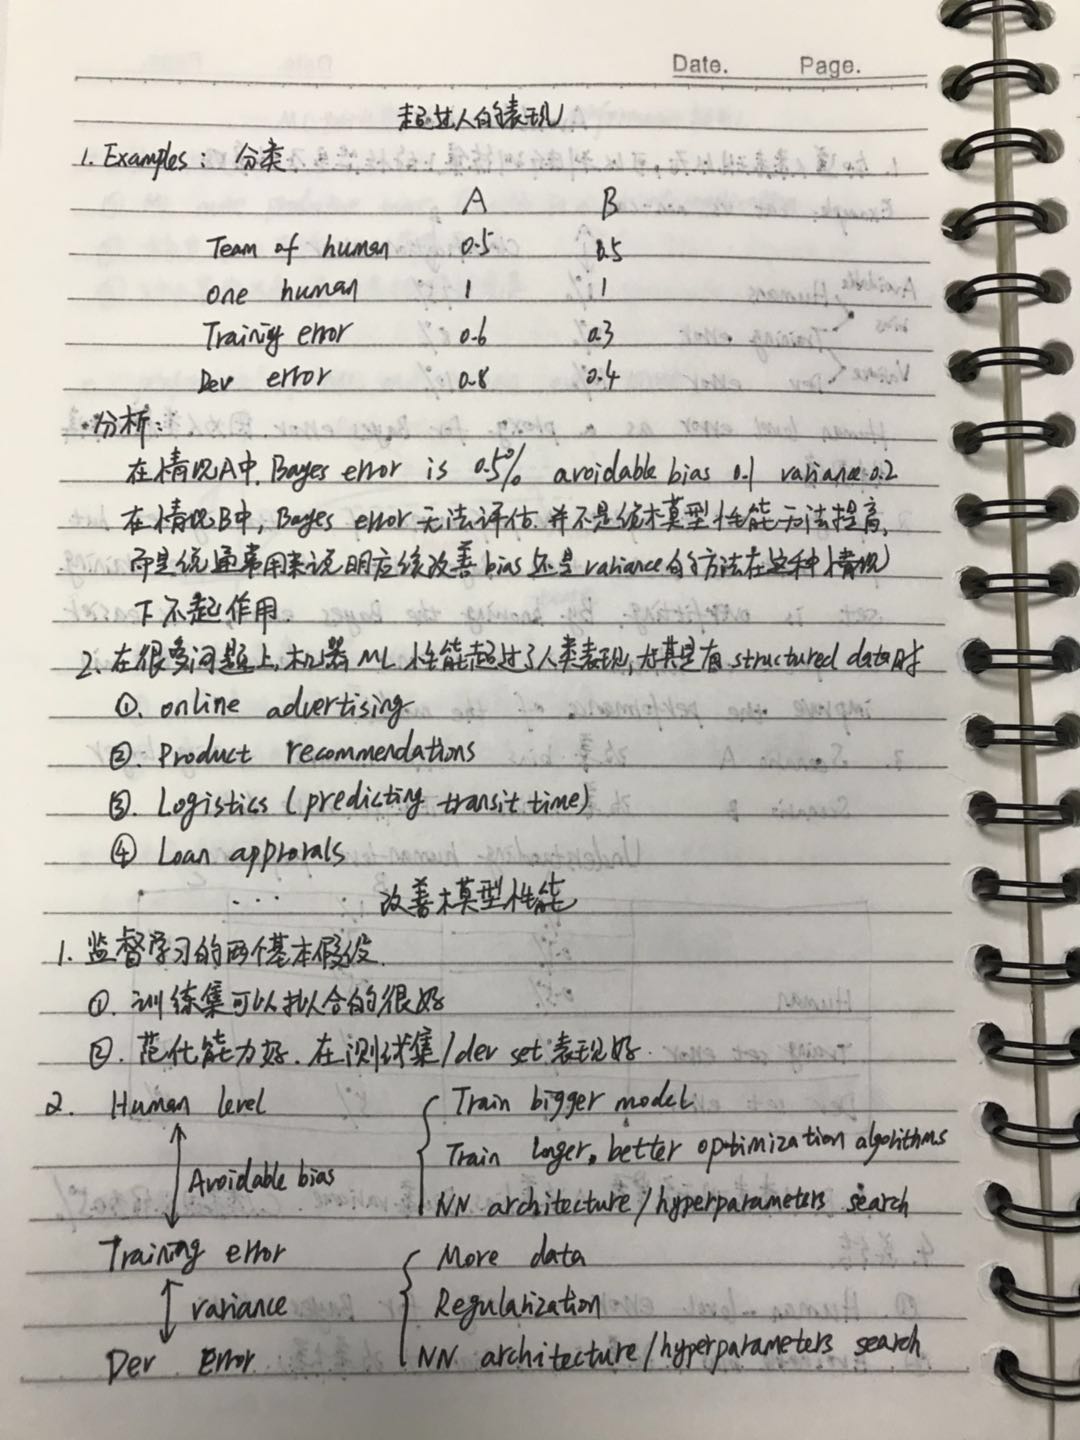 Date. Page.
超过人的表现
1. Examples: 分类
A B
Team of human 0.5 0.5
one human 1 1
Training error 0.6 0.3
Dev error 0.8 0.4
·分析:
在情况A中, Bayes error is 0.5% avoidable bias 0.1 variance 0.2
在情况B中, Bayes error 无法评估. 并不是说模型性能无法提高,
而是说通常用来说明应该改善bias还是variance的方法在这种情况
下不起作用
2. 在很多问题上, 机器ML 性能超过了人类表现, 尤其是有structured data时
①. online advertising
②. Product recommendations
③. Logistics (predicting transit time)
④ Loan approvals
... 改善模型性能
1. 监督学习的两个基本假设.
①. 训练集可以拟合的很好
②. 范化能力好. 在测试集/dev set 表现好.
2. Human level Train bigger model.
Train longer, better optimization algorithms
Avoidable bias
NN architecture/hyperparameters search
Training error More data
variance Regularization
Dev Error NN architecture/hyperparameters search